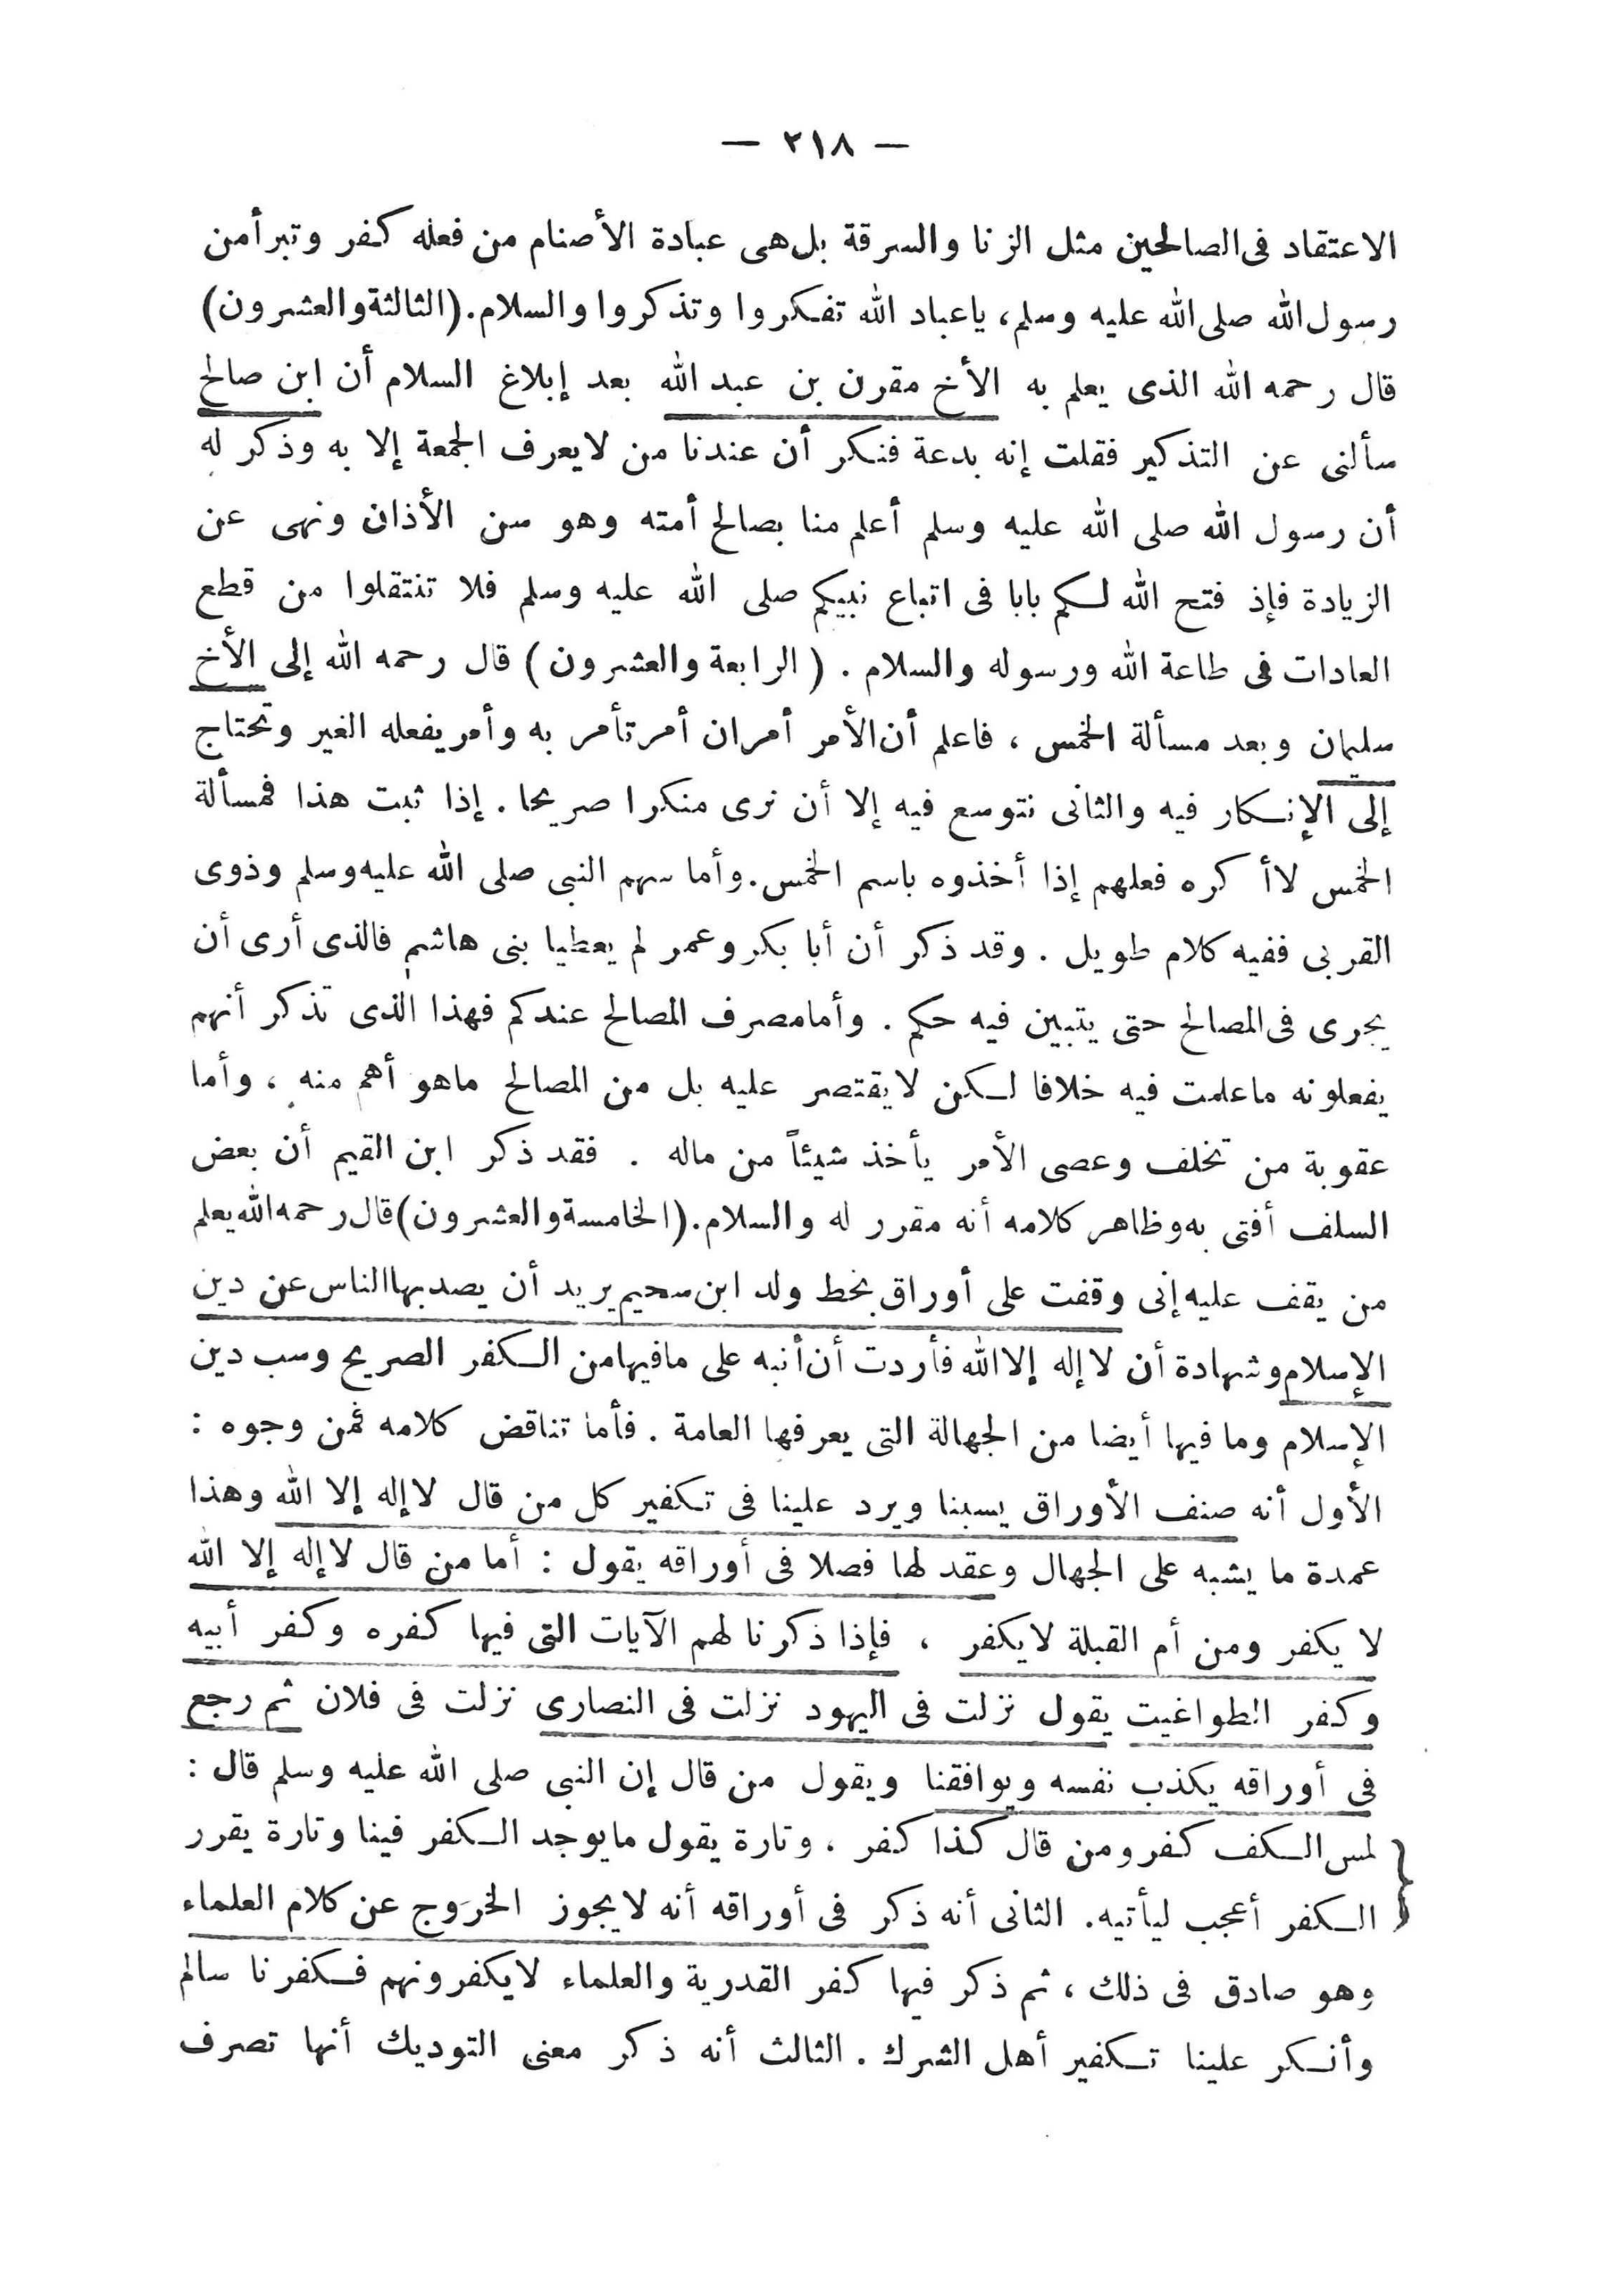 — ٢١٨ —
الاعتقاد فى الصالحين مثل الزنا والسرقة بل هى عبادة الأصنام من فعله كفر وتبرأ من
رسول الله صلى الله عليه وسلم، ياعباد الله تفكروا وتذكروا والسلام. (الثالثة والعشرون)
قال رحمه الله الذى يعلم به الأخ مقرن بن عبد الله بعد إبلاغ السلام أن ابن صالح
سألنى عن التذكير فقلت إنه بدعة فنكر أن عندنا من لايعرف الجمعة إلا به وذكر له
أن رسول الله صلى الله عليه وسلم أعلم منا بصالح أمته وهو سن الأذان ونهى عن
الزيادة فإذ فتح الله لكم بابا فى اتباع نبيكم صلى الله عليه وسلم فلا تنتقلوا من قطع
العادات فى طاعة الله ورسوله والسلام . ( الرابعة والعشرون ) قال رحمه الله إلى الأخ
سليمان وبعد مسألة الخمس ، فاعلم أن الأمر أمران أمر تأمر به وأمر يفعله الغير وتحتاج
إلى الإنكار فيه والثانى نتوسع فيه إلا أن نرى منكرا صريحا . إذا ثبت هذا فمسألة
الخمس لاأكره فعلهم إذا أخذوه باسم الخمس. وأما سهم النبى صلى الله عليه وسلم وذوى
القربى ففيه كلام طويل . وقد ذكر أن أبا بكر وعمر لم يعطيا بنى هاشم فالذى أرى أن
يجرى فى المصالح حتى يتبين فيه حكم . وأما مصرف المصالح عندكم فهذا الذى تذكر أنهم
يفعلونه ماعلمت فيه خلافا لكن لايقتصر عليه بل من المصالح ماهو أهم منه ، وأما
عقوبة من تخلف وعصى الأمر يأخذ شيئاً من ماله . فقد ذكر ابن القيم أن بعض
السلف أفتى به وظاهر كلامه أنه مقرر له والسلام. (الخامسة والعشرون) قال رحمه الله يعلم
من يقف عليه إنى وقفت على أوراق بخط ولد ابن سحيم يريد أن يصد بها الناس عن دين
الإسلام وشهادة أن لاإله إلا الله فأردت أن أنبه على مافيها من الكفر الصريح وسب دين
الإسلام وما فيها أيضا من الجهالة التى يعرفها العامة . فأما تناقض كلامه فمن وجوه :
الأول أنه صنف الأوراق يسبنا ويرد علينا فى تكفير كل من قال لاإله إلا الله وهذا
عمدة ما يشبه على الجهال وعقد لها فصلا فى أوراقه يقول : أما من قال لاإله إلا الله
لا يكفر ومن أم القبلة لايكفر ، فإذا ذكرنا لهم الآيات التى فيها كفره وكفر أبيه
وكفر الطواغيت يقول نزلت فى اليهود نزلت فى النصارى نزلت فى فلان ثم رجع
فى أوراقه يكذب نفسه ويوافقنا ويقول من قال إن النبى صلى الله عليه وسلم قال :
لمس الكف كفر ومن قال كذا كفر ، وتارة يقول مايوجد الكفر فينا وتارة يقرر
الكفر أعجب ليأتيه. الثانى أنه ذكر فى أوراقه أنه لايجوز الخروج عن كلام العلماء
وهو صادق فى ذلك ، ثم ذكر فيها كفر القدرية والعلماء لايكفرونهم فكفرنا سالم
وأنكر علينا تكفير أهل الشرك . الثالث أنه ذكر معنى التوديك أنها تصرف